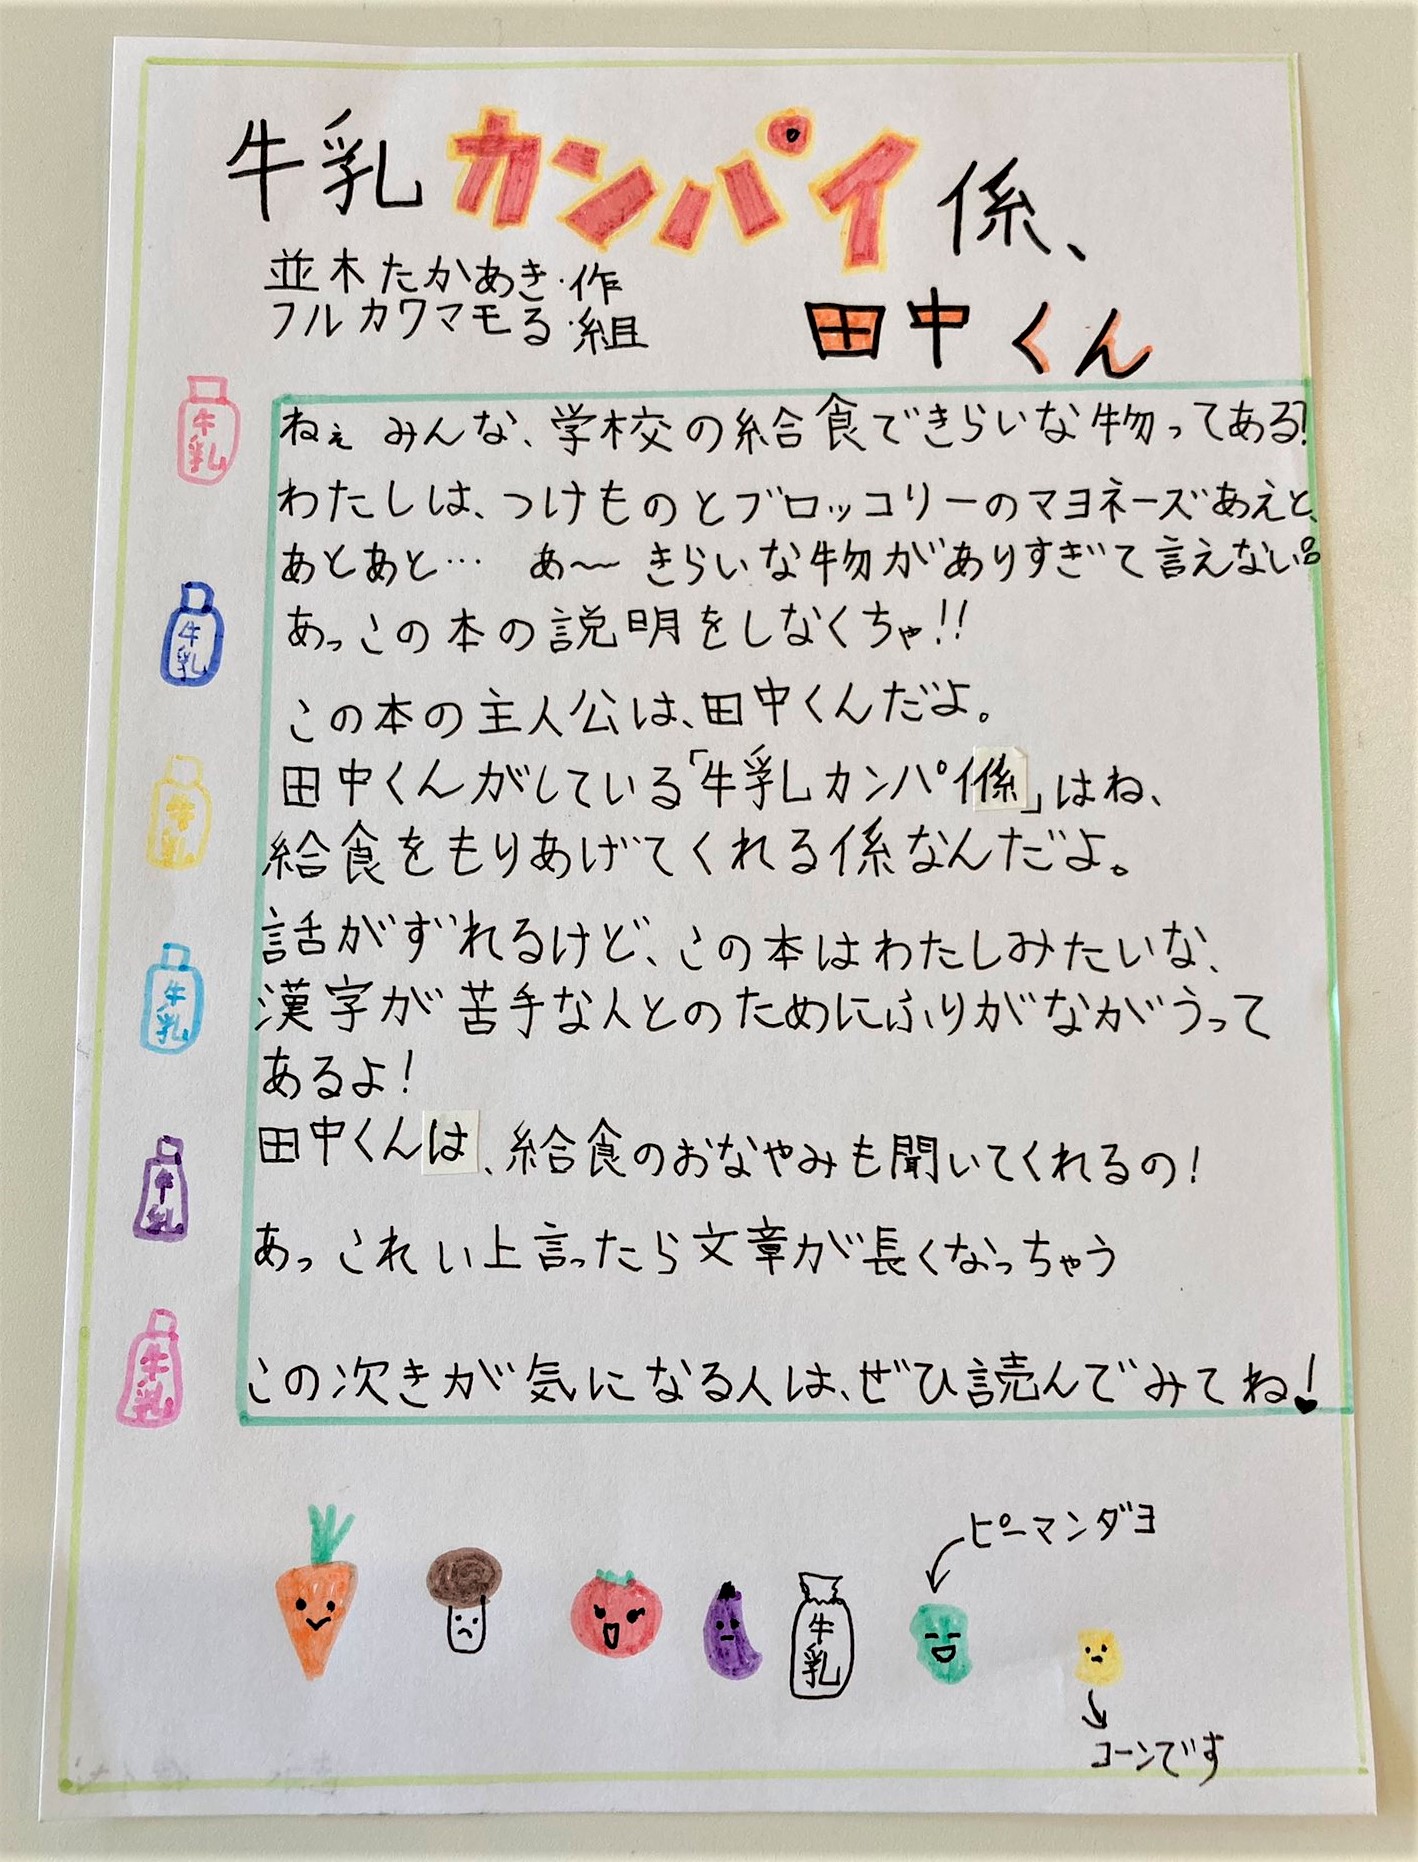 牛乳カンパイ係、
田中くん
並木たかあき・作
フルカワマモる・組
ねぇ みんな、学校の給食できらいな物ってある?
わたしは、つけものとブロッコリーのマヨネーズあえと、
あとあと… あ〜 きらいな物がありすぎて言えない
あっこの本の説明をしなくちゃ!!
この本の主人公は、田中くんだよ。
田中くんがしている「牛乳カンパイ係」はね、
給食をもりあげてくれる係なんだよ。
話がずれるけど、この本はわたしみたいな、
漢字が苦手な人とのためにふりがながうって
あるよ!
田中くんは、給食のおなやみも聞いてくれるの!
あっ これい上言ったら文章が長くなっちゃう
この次きが気になる人は、ぜひ読んでみてね!
牛乳
牛乳
牛乳
牛乳
牛乳
牛乳
牛乳
ピーマンダヨ
コーンです